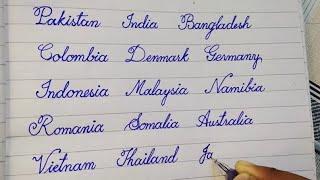 Pakistan India Bangladesh
Colombia Denmark Germany
Indonesia Malaysia Namibia
Romania Somalia Australia
Vietnam Thailand Ja